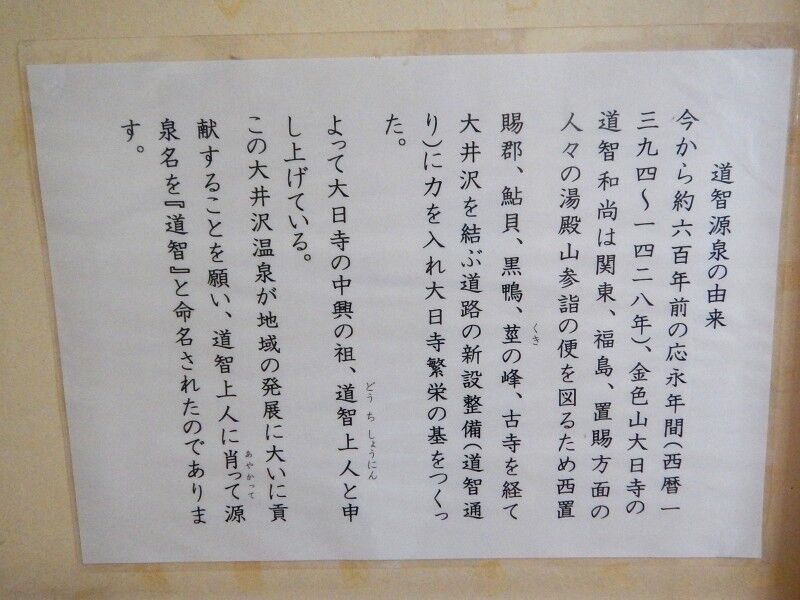 道智源泉の由来
今から約六百年前の応永年間(西暦一
三九四〜一四二八年)、金色山大日寺の
道智和尚は関東、福島、置賜方面の
人々の湯殿山参詣の便を図るため西置
賜郡、鮎貝、黒鴨、茎の峰、古寺を経て
くき
大井沢を結ぶ道路の新設整備(道智通
り)に力を入れ大日寺繁栄の基をつくっ
た。
よって大日寺の中興の祖、道智上人と申
どうちしょうにん
し上げている。
この大井沢温泉が地域の発展に大いに貢
献することを願い、道智上人に肖って源
あやかって
泉名を『道智』と命名されたのでありま
す。